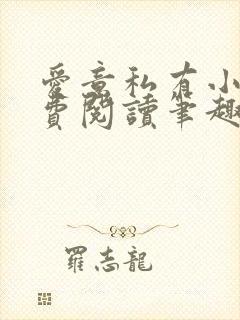 愛意私有小
費閱讀筆趣
羅志龍